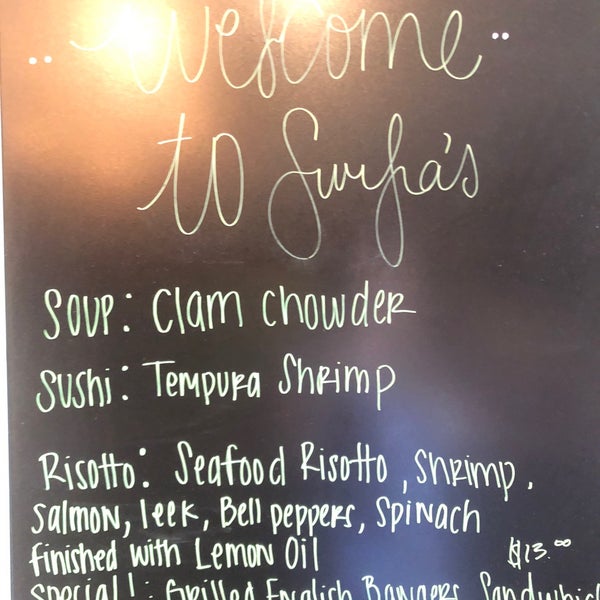 Welcome
to Surfa's
Soup: Clam Chowder
Sushi: Tempura Shrimp
Risotto: Seafood Risotto, Shrimp,
Salmon, leek, Bell peppers, Spinach
finished with Lemon Oil $13.00
Special!: Grilled English Bangers Sandwhich